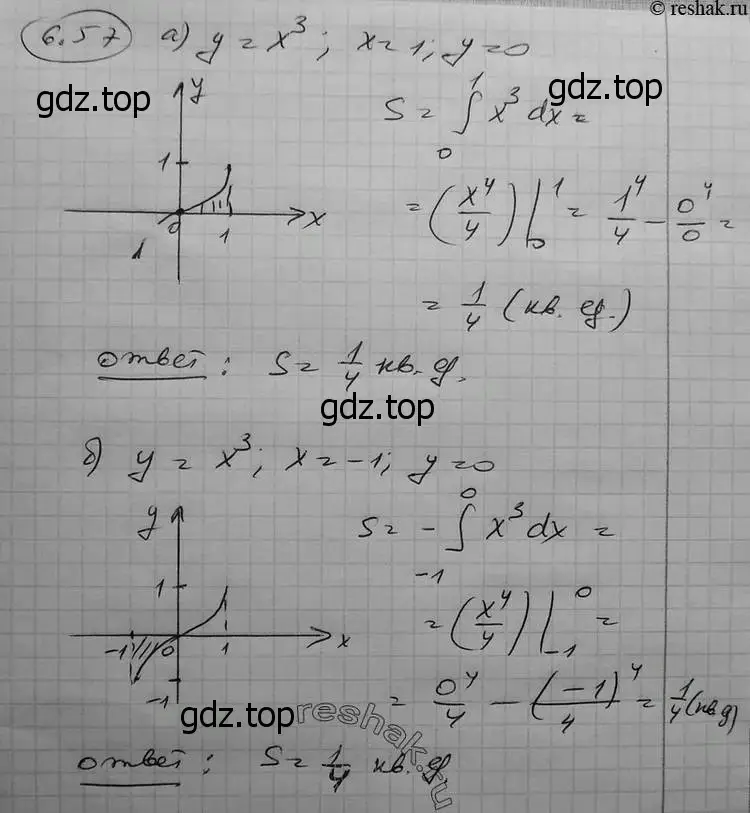 © reshak.ru
6.57 а) y = x³; x=1; y=0
gdz.top gdz.top
y
S = ∫₀¹ x³ dx =
1
= (x⁴/4) |₀¹ = 1⁴/4 - 0⁴/0 =
0 1 x
= 1/4 (кв. ед.)
ответ: S = 1/4 кв. ед.
gdz.top
б) y = x³; x = -1; y=0
y
S = - ∫₋₁⁰ x³ dx =
1
= (x⁴/4) |₋₁⁰ =
-1 0 1 x
-1
= 0⁴/4 - (-1)⁴/4 = 1/4 (кв.д)
gdz.top reshak.ru
ответ: S = 1/4 кв. ед.
gdz.top